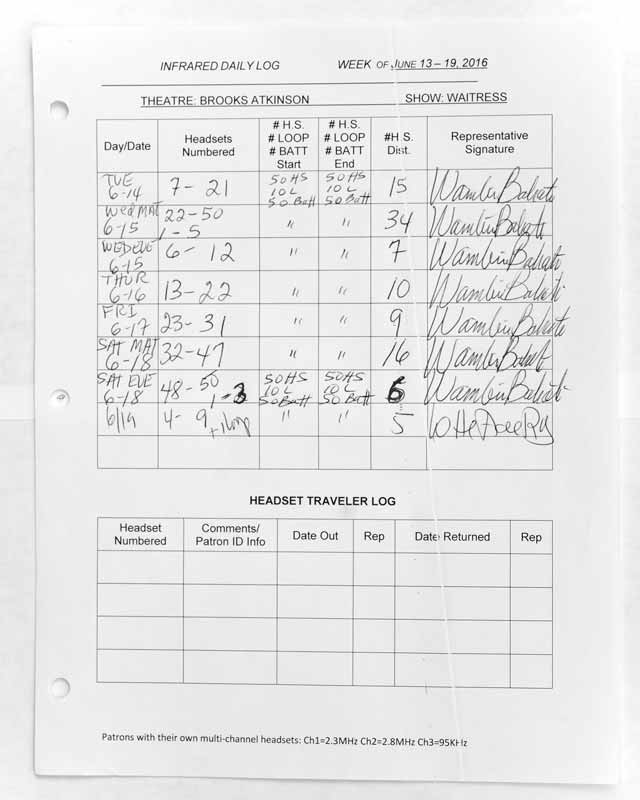 INFRARED DAILY LOG WEEK OF JUNE 13 – 19, 2016
THEATRE: BROOKS ATKINSON SHOW: WAITRESS
Day/Date Headsets Numbered # H.S. # LOOP # BATT Start # H.S. # LOOP # BATT End #H.S. Dist. Representative Signature
TUE 6-14 7- 21 50HS 10 L 50 Batt 50HS 10 L 50 Batt 15
Wed MAT 6-15 22-50 1-5 " " 34
WED EVE 6-15 6- 12 " " 7
THUR 6-16 13-22 " " 10
FRI 6-17 23-31 " " 9
SAT MAT 6-18 32-47 " " 16
SAT EVE 6-18 48-50 1-3 50HS 10 L 50 Batt 50HS 10 L 50 Batt 6
6/19 4- 9 +1 loop " " 5
HEADSET TRAVELER LOG
Headset Numbered Comments/ Patron ID Info Date Out Rep Date Returned Rep
Patrons with their own multi-channel headsets: Ch1=2.3MHz Ch2=2.8MHz Ch3=95KHz